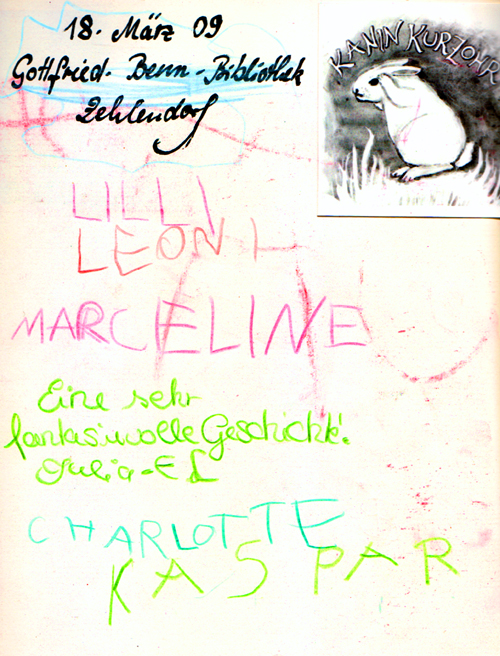 18. März 09
Gottfried-Benn-Bibliothek
Zehlendorf
KANIN KURZOHR
LILLI
LEONI
MARCELINE
Eine sehr
fantasiwolle Geschichte!
Julia-El
CHARLOTTE
KASPAR